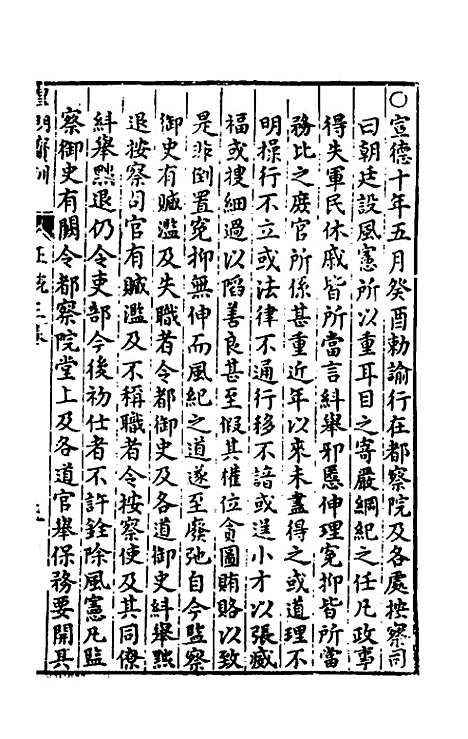 ○宣德十年五月癸酉勑諭行在都察院及各處按察司
曰朝廷設風憲所以重耳目之寄嚴綱紀之任凡政事
得失軍民休戚皆所當言糾舉邪慝伸理冤抑皆所當
務比之庶官所係甚重近年以來未盡得之或道理不
明操行不立或法律不通行移不諳或逞小才以張威
福或搜細過以陷善良甚至假其權位貪圖賄賂以致
是非倒置冤抑無伸而風紀之道遂至廢弛自今監察
御史有贓濫及失職者令都御史及各道御史糾舉黜
退按察司官有贓濫及不稱職者令按察使及其同僚
糾舉黜退仍令吏部今後初仕者不許銓除風憲凡監
察御史有闕令都察院堂上及各道官舉保務要開具